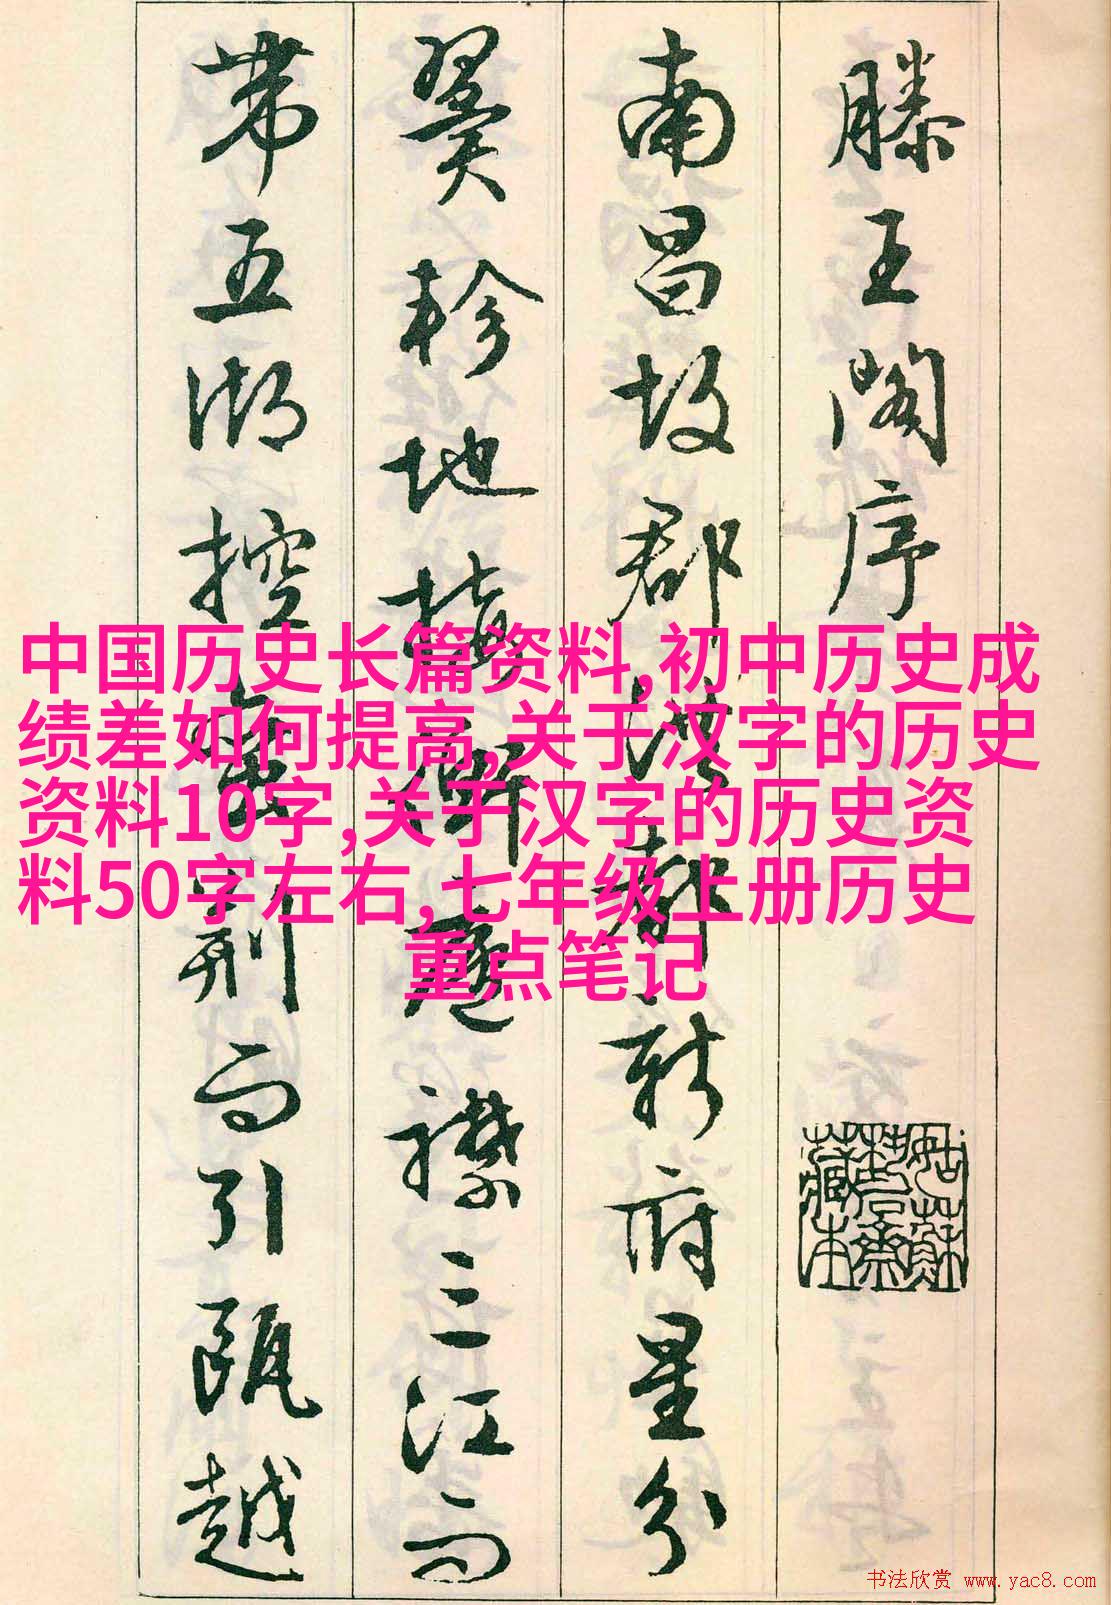 滕王閣序
南昌故郡洪都新府星分
翼軫地接衡廬襟三江而
帶五湖控蠻荊而引甌越
姑蘇
藏本
中国历史长篇资料,初中历史成
绩差如何提高,关于汉字的历史
资料10字,关于汉字的历史资
料50字左右,七年级上册历史
重点笔记
书法欣赏 www.yac8.com